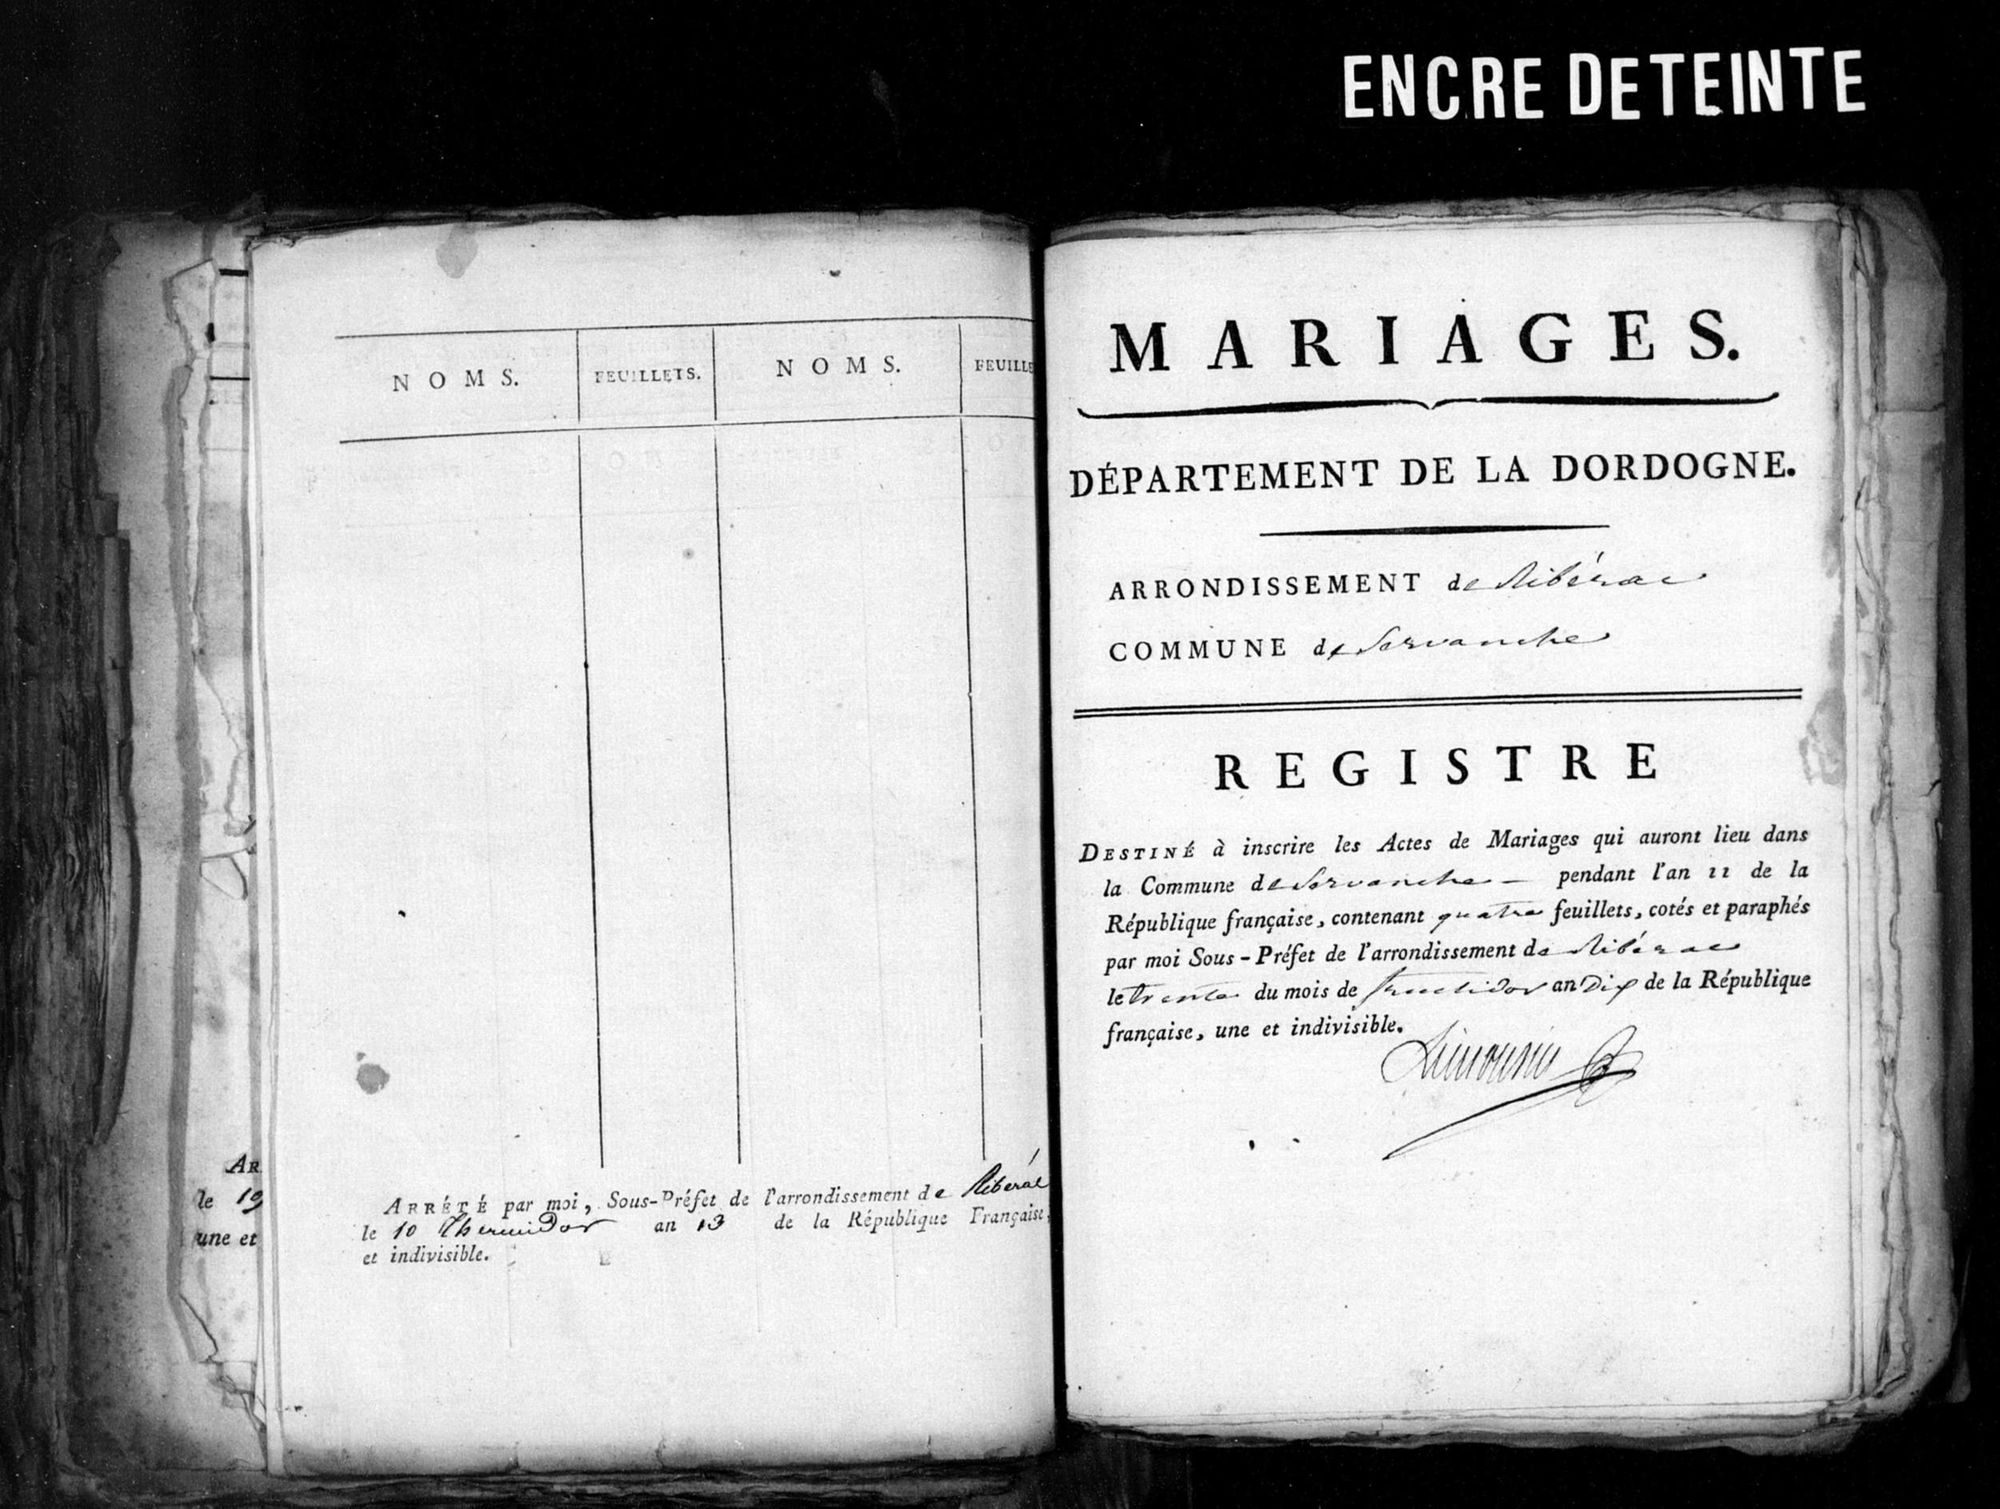 ENCRE DETEINTE
NOMS. FEUILLETS. NOMS. FEUILLE
AR
le 19
une et
ARRÊTÉ par moi, Sous-Préfet de l'arrondissement de Ribérac
le 10 Thermidor an 13 de la République Française,
et indivisible.
MARIAGES.
DÉPARTEMENT DE LA DORDOGNE.
ARRONDISSEMENT de Ribérac
COMMUNE de Servanche
REGISTRE
DESTINÉ à inscrire les Actes de Mariages qui auront lieu dans
la Commune de Servanche — pendant l'an 11 de la
République française, contenant quatre feuillets, cotés et paraphés
par moi Sous-Préfet de l'arrondissement de Ribérac
le trente du mois de fructidor an Dix de la République
française, une et indivisible.
Limousin